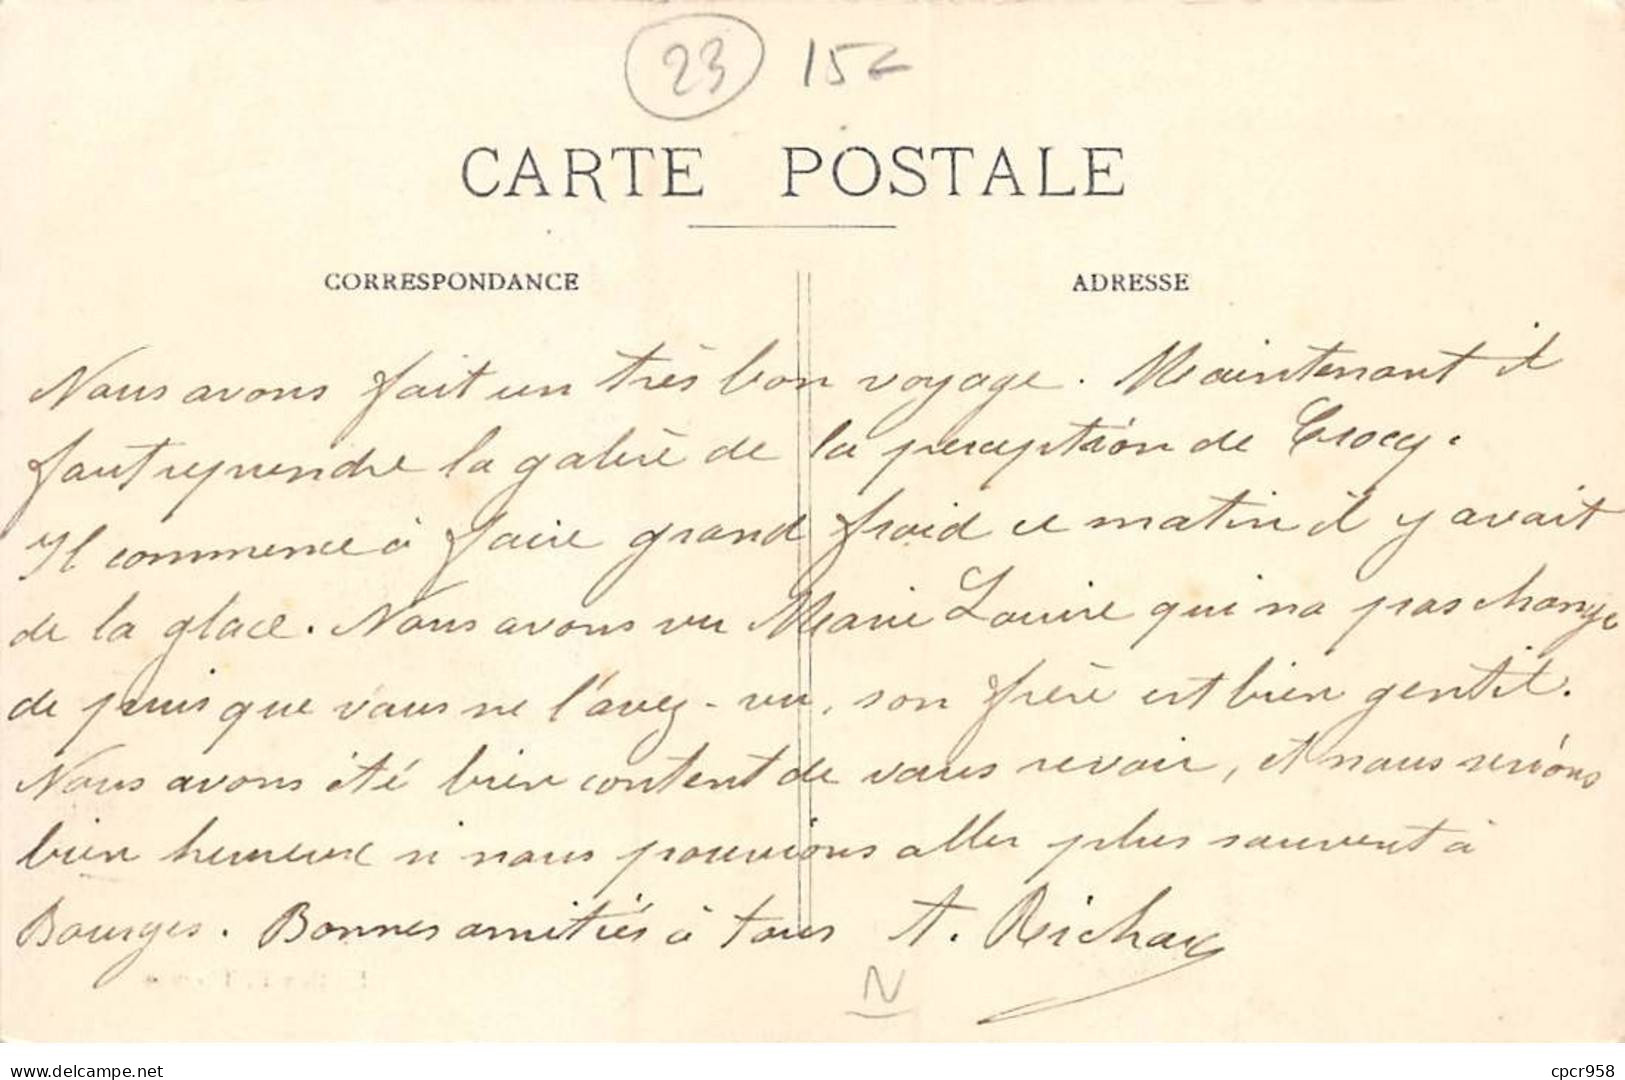 23 15€
CARTE POSTALE
CORRESPONDANCE ADRESSE
Nous avons fait un très bon voyage. Maintenant il
faut reprendre la galère de la perception de Crocq.
Il commence à faire grand froid ce matin il y avait
de la glace. Nous avons vu Marie Louise qui na pas change
de puis que vous ne l'avez-vu, son frère est bien gentil.
Nous avons été bien content de vous revoir, et nous serions
bien heureux si nous pouvions aller plus souvent à
Bourges. Bonnes amitiés à tous A. Richard
N
www.delcampe.net cpcr958